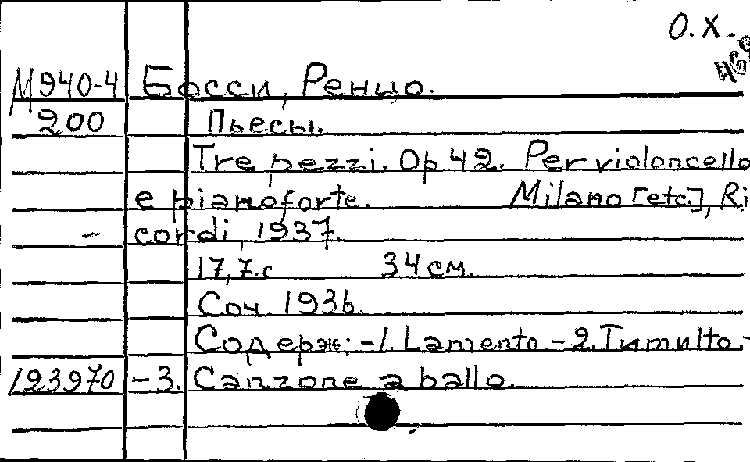 О.Х.
М940-4 Босси, Ренцо.
200 Пьесы.
Tre pezzi. Op 42. Per violoncello
e pianoforte. Milano [etc.], Ri
cordi, 1937.
17, 7.с 34 см.
Соч. 1936.
Содерж: -1. Lamento -2. Tumulto.-
123970 -3. Canzone a ballo.